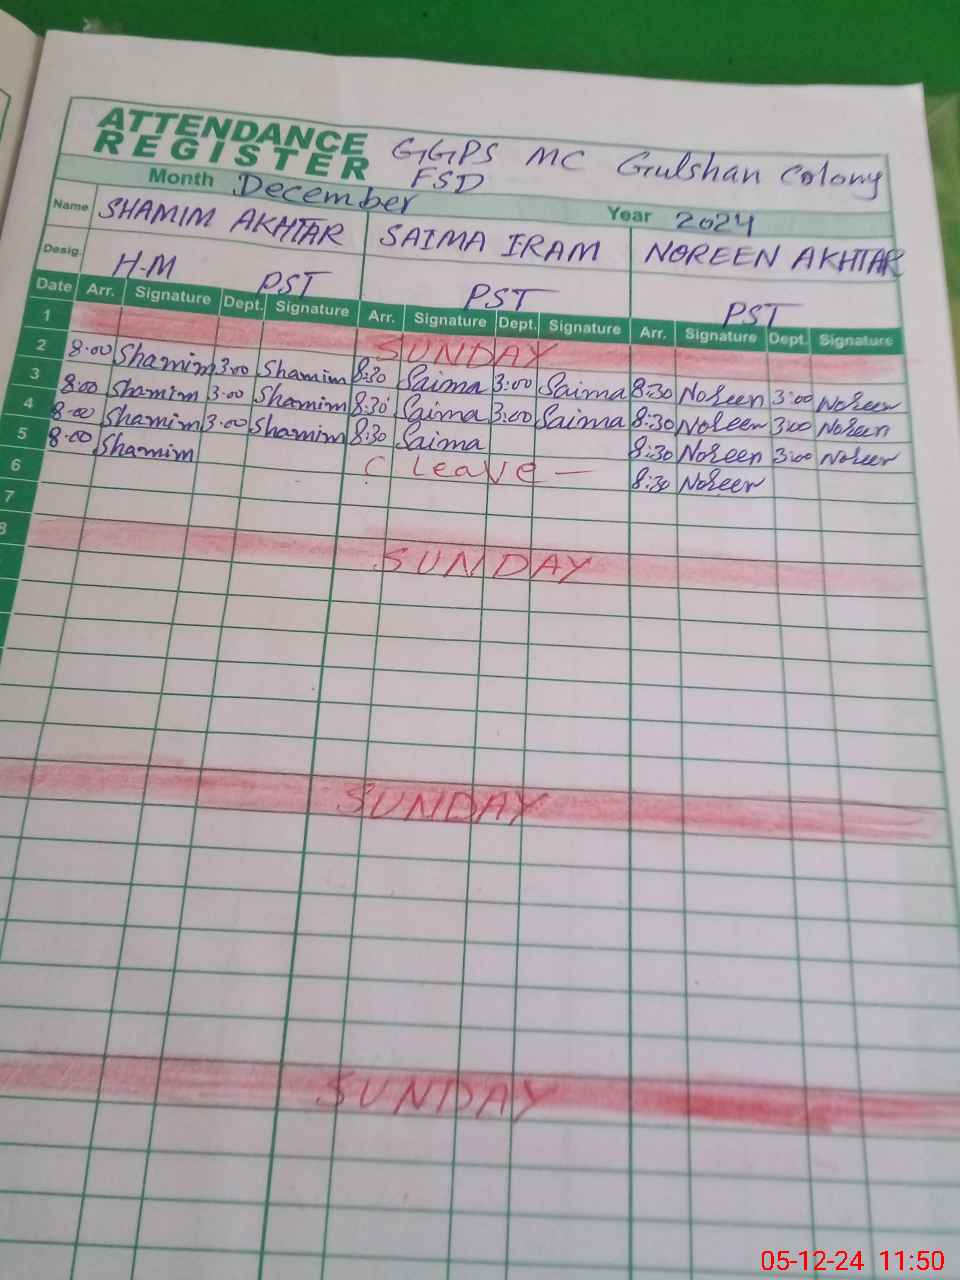 ATTENDANCE REGISTER GGPS MC Gulshan Colony FSD
Month December Year 2024
Name SHAMIM AKHTAR SAIMA IRAM NOREEN AKHTAR
Desig. H-M PST PST PST
Date Arr. Signature Dept. Signature Arr. Signature Dept. Signature Arr. Signature Dept. Signature
1 SUNDAY
2 8:00 Shamim 3:00 Shamim 8:30 Saima 3:00 Saima 8:30 Noreen 3:00 Noreen
3 8:00 Shamim 3:00 Shamim 8:30 Saima 3:00 Saima 8:30 Noreen 3:00 Noreen
4 8:00 Shamim 3:00 Shamim 8:30 Saima 8:30 Noreen 3:00 Noreen
5 8:00 Shamim C Leave — 8:30 Noreen
6
7
8 SUNDAY
SUNDAY
SUNDAY
05-12-24 11:50